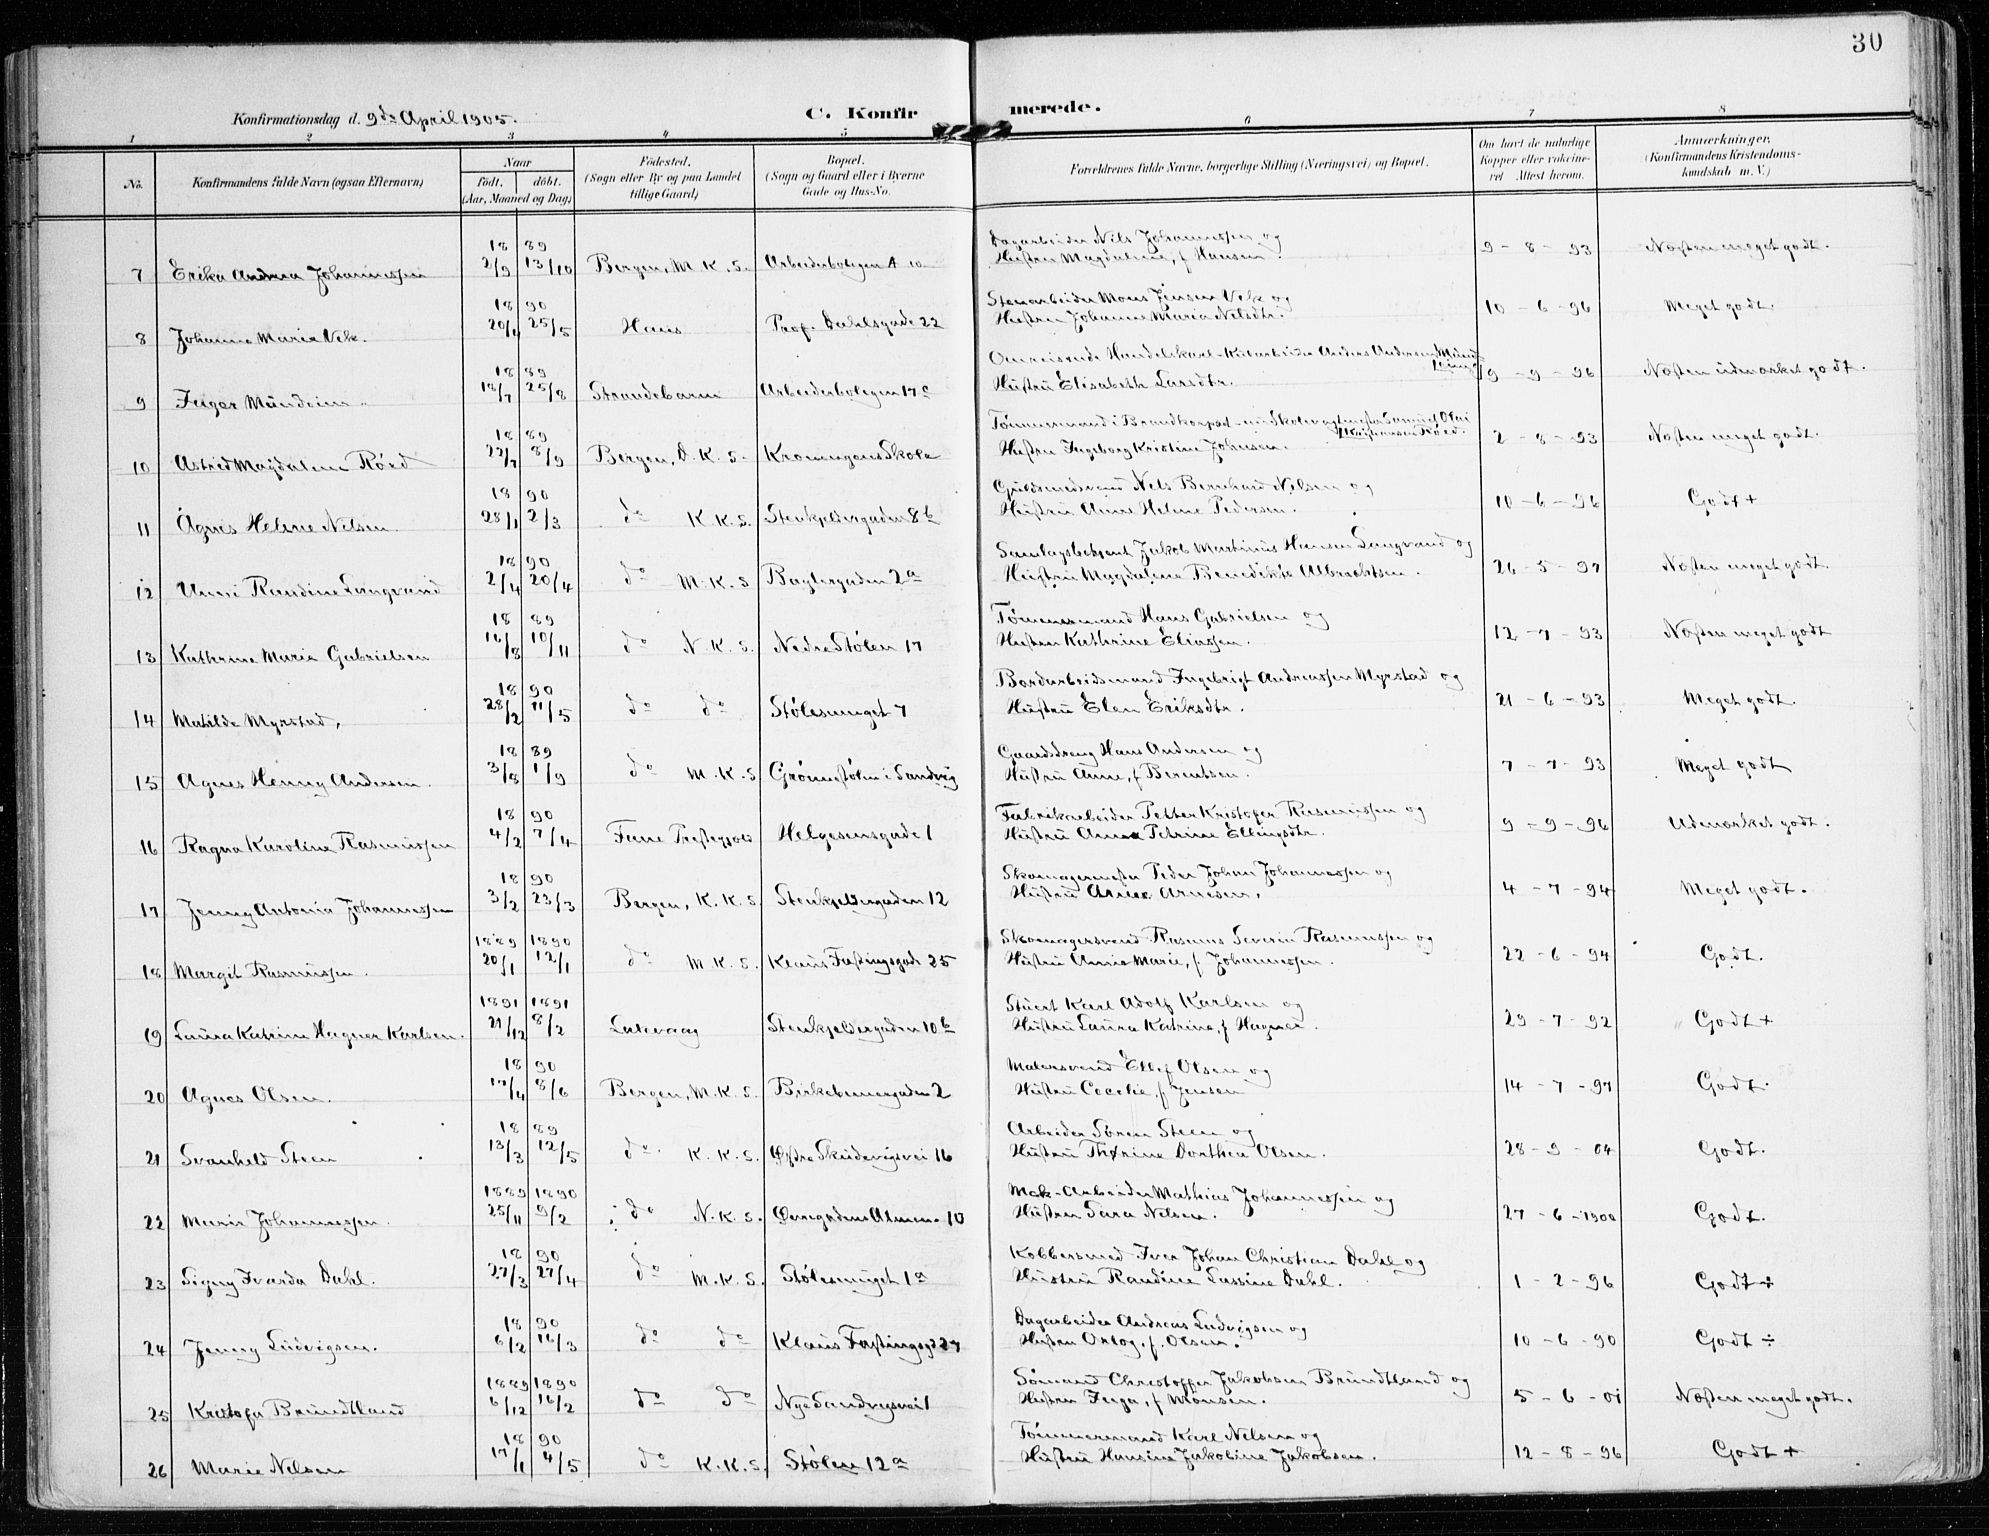 30
Konfirmationsdag d. 9de April 1905.
C. Konfirmerede.
1 2 3 4 5 6 7 8
No. Konfirmandens fulde Navn (ogsaa Efternavn) Naar født. døbt. (Aar, Maaned og Dag) Fødested. (Sogn eller By og paa Landet tillige Gaard) Bopæl. (Sogn og Gaard eller i Byerne Gade og Hus-No. Forældrenes fulde Navne, borgerlige Stilling (Næringsvei) og Bopæl. Om havt de naturlige Kopper eller vakcineret Attest herom. Anmærkninger. (Konfirmandens Kristendomskundskab m. V.)
18 89 Dagarbeider Nils Johannessen og
7 Erika Andrea Johannessen 2/9 13/10 Bergen, M. K. S. Arbeiderboligen A 10 Hustru Magdalene, f Hansen. 9-8-93 Næsten meget godt.
18 90 Stenarbeider Mons Jensen Velk og
8 Johanne Marie Velk. 20/1 25/5 Haus Prof. Dahlsgade 22 Hustru Johanne Maria Nelsdtr. 10-6-96 Meget godt.
18 89 Omreisende Handelskarl - Anders Andersen
9 Inger Mundeim 18/7 25/8 Strandebarm Arbeiderboligen 17c Hustru Elisabeth Larsdtr. 9-9-96 Næsten udmærket godt.
18 89 Tømmermand i Brandkorpset Samuel Olai Kristensen Røed.
10 Astrid Magdalene Røed 22/7 8/9 Bergen, D. K. S. Kroneengens Skole Hustru Ingeborg Kristine Johnsen. 2-8-93 Næsten meget godt.
18 90 Guldsmedsvend Nels Bernhard Nelsen og
11 Agnes Helene Nilsen 28/1 2/3 do K. K. S. Stenkjeldergaden 8b Hustru Anne Helene Pedersen. 10-6-96 Godt +
18 90 Samlagsbetjent Jakob Martinus Hansen Langvand og
12 Unni Randine Langvand 2/4 20/4 do M. K. S Baglergaden 2a Hustru Magdalene Benedikte Albrechtsen. 26-5-97 Næsten meget godt.
18 89 Tømmermand Hans Gabrielsen og
13 Kathrine Marie Gabrielsen 16/8 10/11 do N. K. S. Nedre Stølen 17 Hustru Kathrine Eliassen. 12-7-93 Næsten meget godt
18 90 Bordarbeidsmand Ingebrigt Andreassen Myrstad og
14 Matilde Myrstad, 28/2 11/5 do do Stølesmuget 7 Hustru Elen Eriksdtr. 21-6-93 Meget godt.
18 89 Gaardsdreng Hans Andersen og
15 Agnes Henny Andersen. 3/8 1/9 do M. K. S. Grønnestølen i Sandvig Hustru Anne, f Berentsen. 7-7-93 Meget godt
18 90 Fabrikarbeider Petter Kristofer Rasmussen og
16 Ragna Karoline Rasmussen 4/2 7/4 Fane Prestegjæld Helgesensgade 1 Hustru Anna Petrine Ellingsdtr. 9-9-96 Udmærket godt.
18 90 Skomagermester Peder Johan Johannessen og
17 Jenny Antonia Johannessen 3/2 23/3 Bergen, K. K. S. Stenkjeldergaden 12 Hustru Anna Arnesen. 4-7-94 Meget godt.
1889 1890 Skomagersvend Rasmus Severin Rasmussen og
18 Margit Rasmussen. 20/1 12/1 do M. K. S. Klaus Fastingsgade 25 Hustru Anne Marie, f. Johannessen. 22-6-94 Godt.
1891 1891 Stuert Karl Adolf Karlsen og
19 Laura Katrine Hagner Karlsen. 21/12 8/2 Laxevaag Stenkjeldergaden 10b Hustru Laura Katrine, f Hagner. 29-7-92 Godt +
18 90 Malersvend Ellef Olsen og
20 Agnes Olsen. 17/4 8/6 Bergen, M. K. S. Birkebeinergaden 2 Hustru Cecelie, f Jensen 14-7-97 Godt.
18 89 Arbeider Søren Steen og
21 Svanheld Steen 13/3 12/5 do. K. K. S. Østre Skudevigsvei 16 Hustru Thørine Dorthea Olsen. 28-9-04 Godt.
1889 1890 Mek-Arbeider Mathias Johannessen og
22 Marie Johannessen. 25/11 9/2 do N. K. S. Øvregadens Almen. 10 Hustru Sara Nelsen. 27-6-1900 Godt.
18 90 Kobbersmed Iver Johan Christian Dahl og
23 Signy Ivarda Dahl. 27/3 27/4 do M. K. S. Stølesmuget 1a Hustru Randine Lassine Dahl. 1-2-96 Godt +
18 90 Dagarbeider Andreas Ludvigsen og
24 Jenny Ludvigsen. 6/2 16/3 do do Klaus Fastingsgd 27 Hustru Orlog, f. Olsen. 10-6-90 Godt ÷
1889 1890 Sømand Christoffer Jakobsen Brundtland og
25 Kristofa Brundtland 6/12 16/2 do do Nye Sandvigsvei 1 Hustru Inga, f Monsen. 5-6-01 Næsten meget godt.
18 90 Tømmermand Karl Nelsen og
26 Marie Nelsen 17/1 4/5 do K. K. S. Stølen 12a Hustru Hansine Jakobine Jakobsen. 12-8-96 Godt +